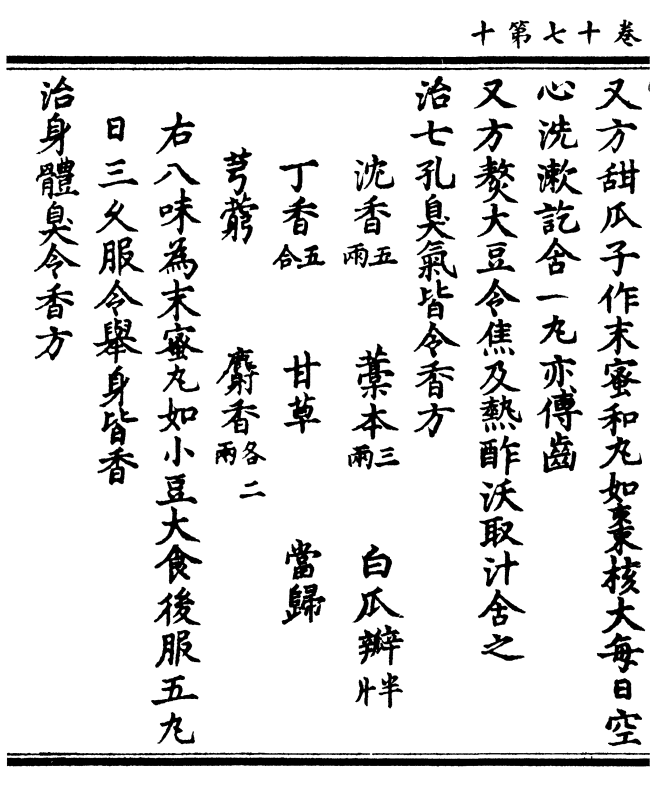 卷十七第十
又方甜瓜子作末蜜和丸如棗核大每日空
心洗漱訖含一丸亦傅齒
又方熬大豆令焦及熱酢沃取汁含之
治七孔臭氣皆令香方
沈香五兩 藁本三兩 白瓜瓣半升
丁香五合 甘草 當歸
芎藭 麝香各二兩
右八味為末蜜丸如小豆大食後服五丸
日三久服令舉身皆香
治身體臭令香方